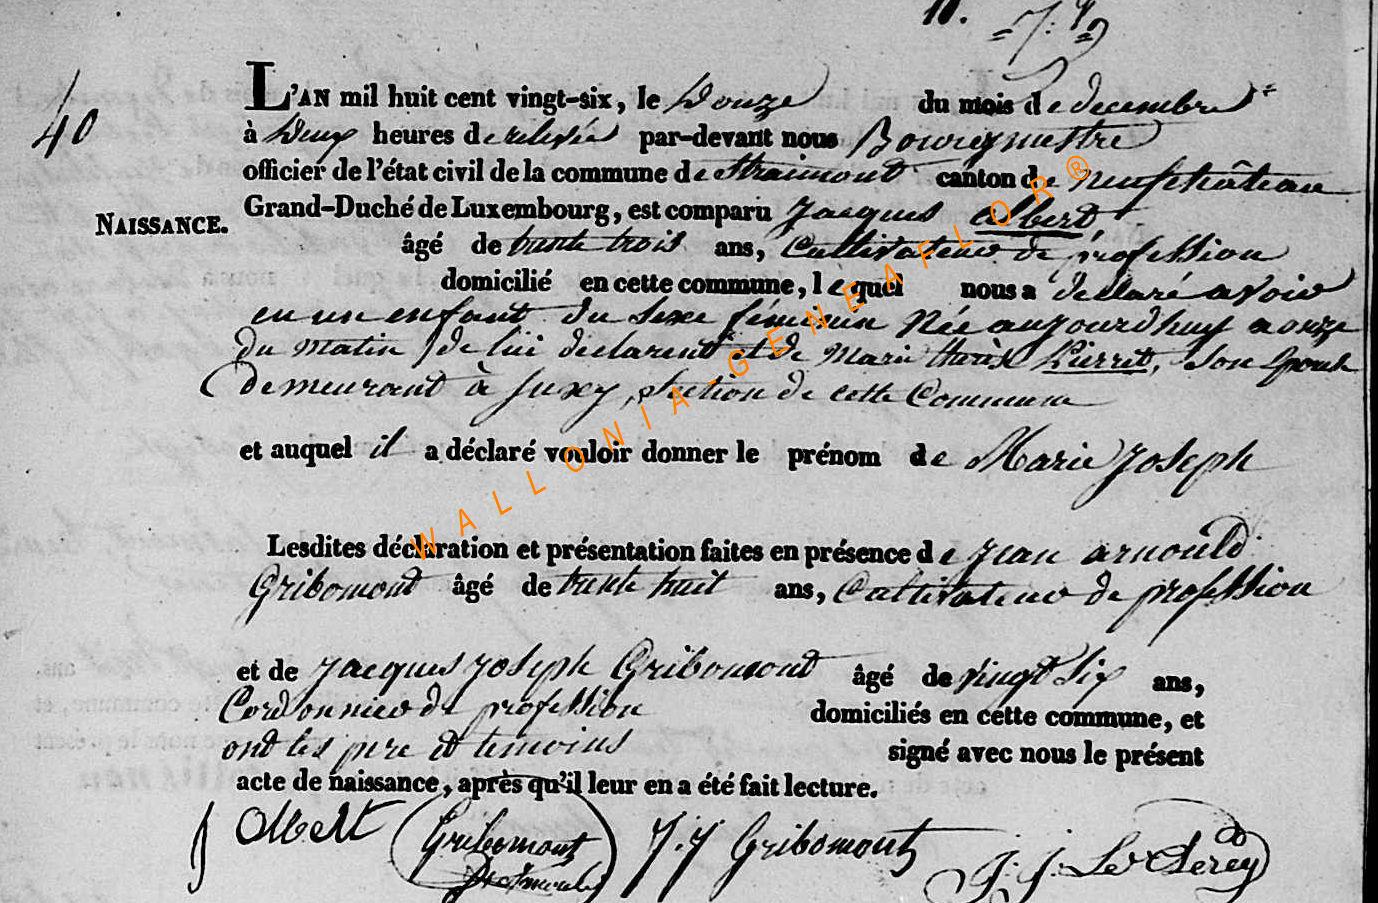 11.
40
L'AN mil huit cent vingt-six, le Douze du mois de decembre
à Deux heures de relevée par-devant nous Bourgmestre
officier de l'état civil de la commune de Straimont canton de neufchâteau
NAISSANCE.
Grand-Duché de Luxembourg, est comparu Jacques albert,
âgé de trente trois ans, Cultivateur de profession
domicilié en cette commune, lequel nous a declaré avoir
eu un enfant du sexe féminin Née aujourdhuy a onze
du matin de lui declarent et de Marie therèse Pierret, son Epouse
demeurant à Suxy, Section de cette Commune
et auquel il a déclaré vouloir donner le prénom de Marie Joseph
Lesdites déclaration et présentation faites en présence de Jean arnould
Gribomont âgé de trente huit ans, Cultivateur de profession
et de Jacques Joseph Gribomont âgé de vingt Six ans,
Cordonnier de profession domiciliés en cette commune, et
ont les pere et temoins signé avec nous le présent
acte de naissance, après qu'il leur en a été fait lecture.
Albert Gribomont J. J Gribomont J. J. Le Clerey
WALLONIA-GENEAFLOR®